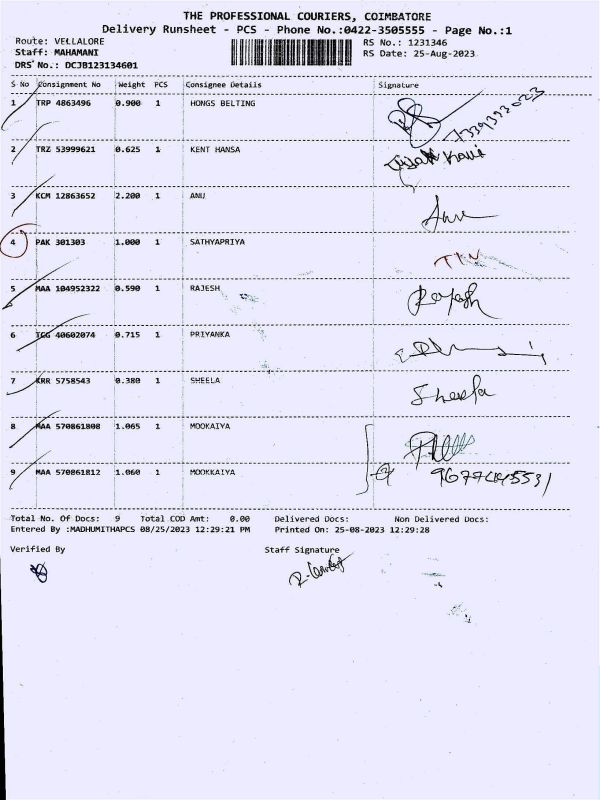 THE PROFESSIONAL COURIERS, COIMBATORE
Delivery Runsheet - PCS - Phone No.:0422-3505555 - Page No.:1
Route: VELLALORE RS No.: 1231346
Staff: MAHAMANI RS Date: 25-Aug-2023
DRS No.: DCJB123134601
S No Consignment No Weight PCS Consignee Details Signature
1 TRP 4863496 0.900 1 HONGS BELTING
2 TRZ 53999621 0.625 1 KENT HANSA
3 KCM 12863652 2.200 1 ANU Anu
4 PAK 301303 1.000 1 SATHYAPRIYA
5 MAA 104952322 0.590 1 RAJESH Rajesh
6 TCG 40602074 0.715 1 PRIYANKA
7 KRR 5758543 0.380 1 SHEELA Sheela
8 MAA 570861808 1.065 1 MOOKAIYA
9 MAA 570861812 1.060 1 MOOKKAIYA
Total No. Of Docs: 9 Total COD Amt: 0.00 Delivered Docs: Non Delivered Docs:
Entered By :MADHUMITHAPCS 08/25/2023 12:29:21 PM Printed On: 25-08-2023 12:29:28
Verified By Staff Signature